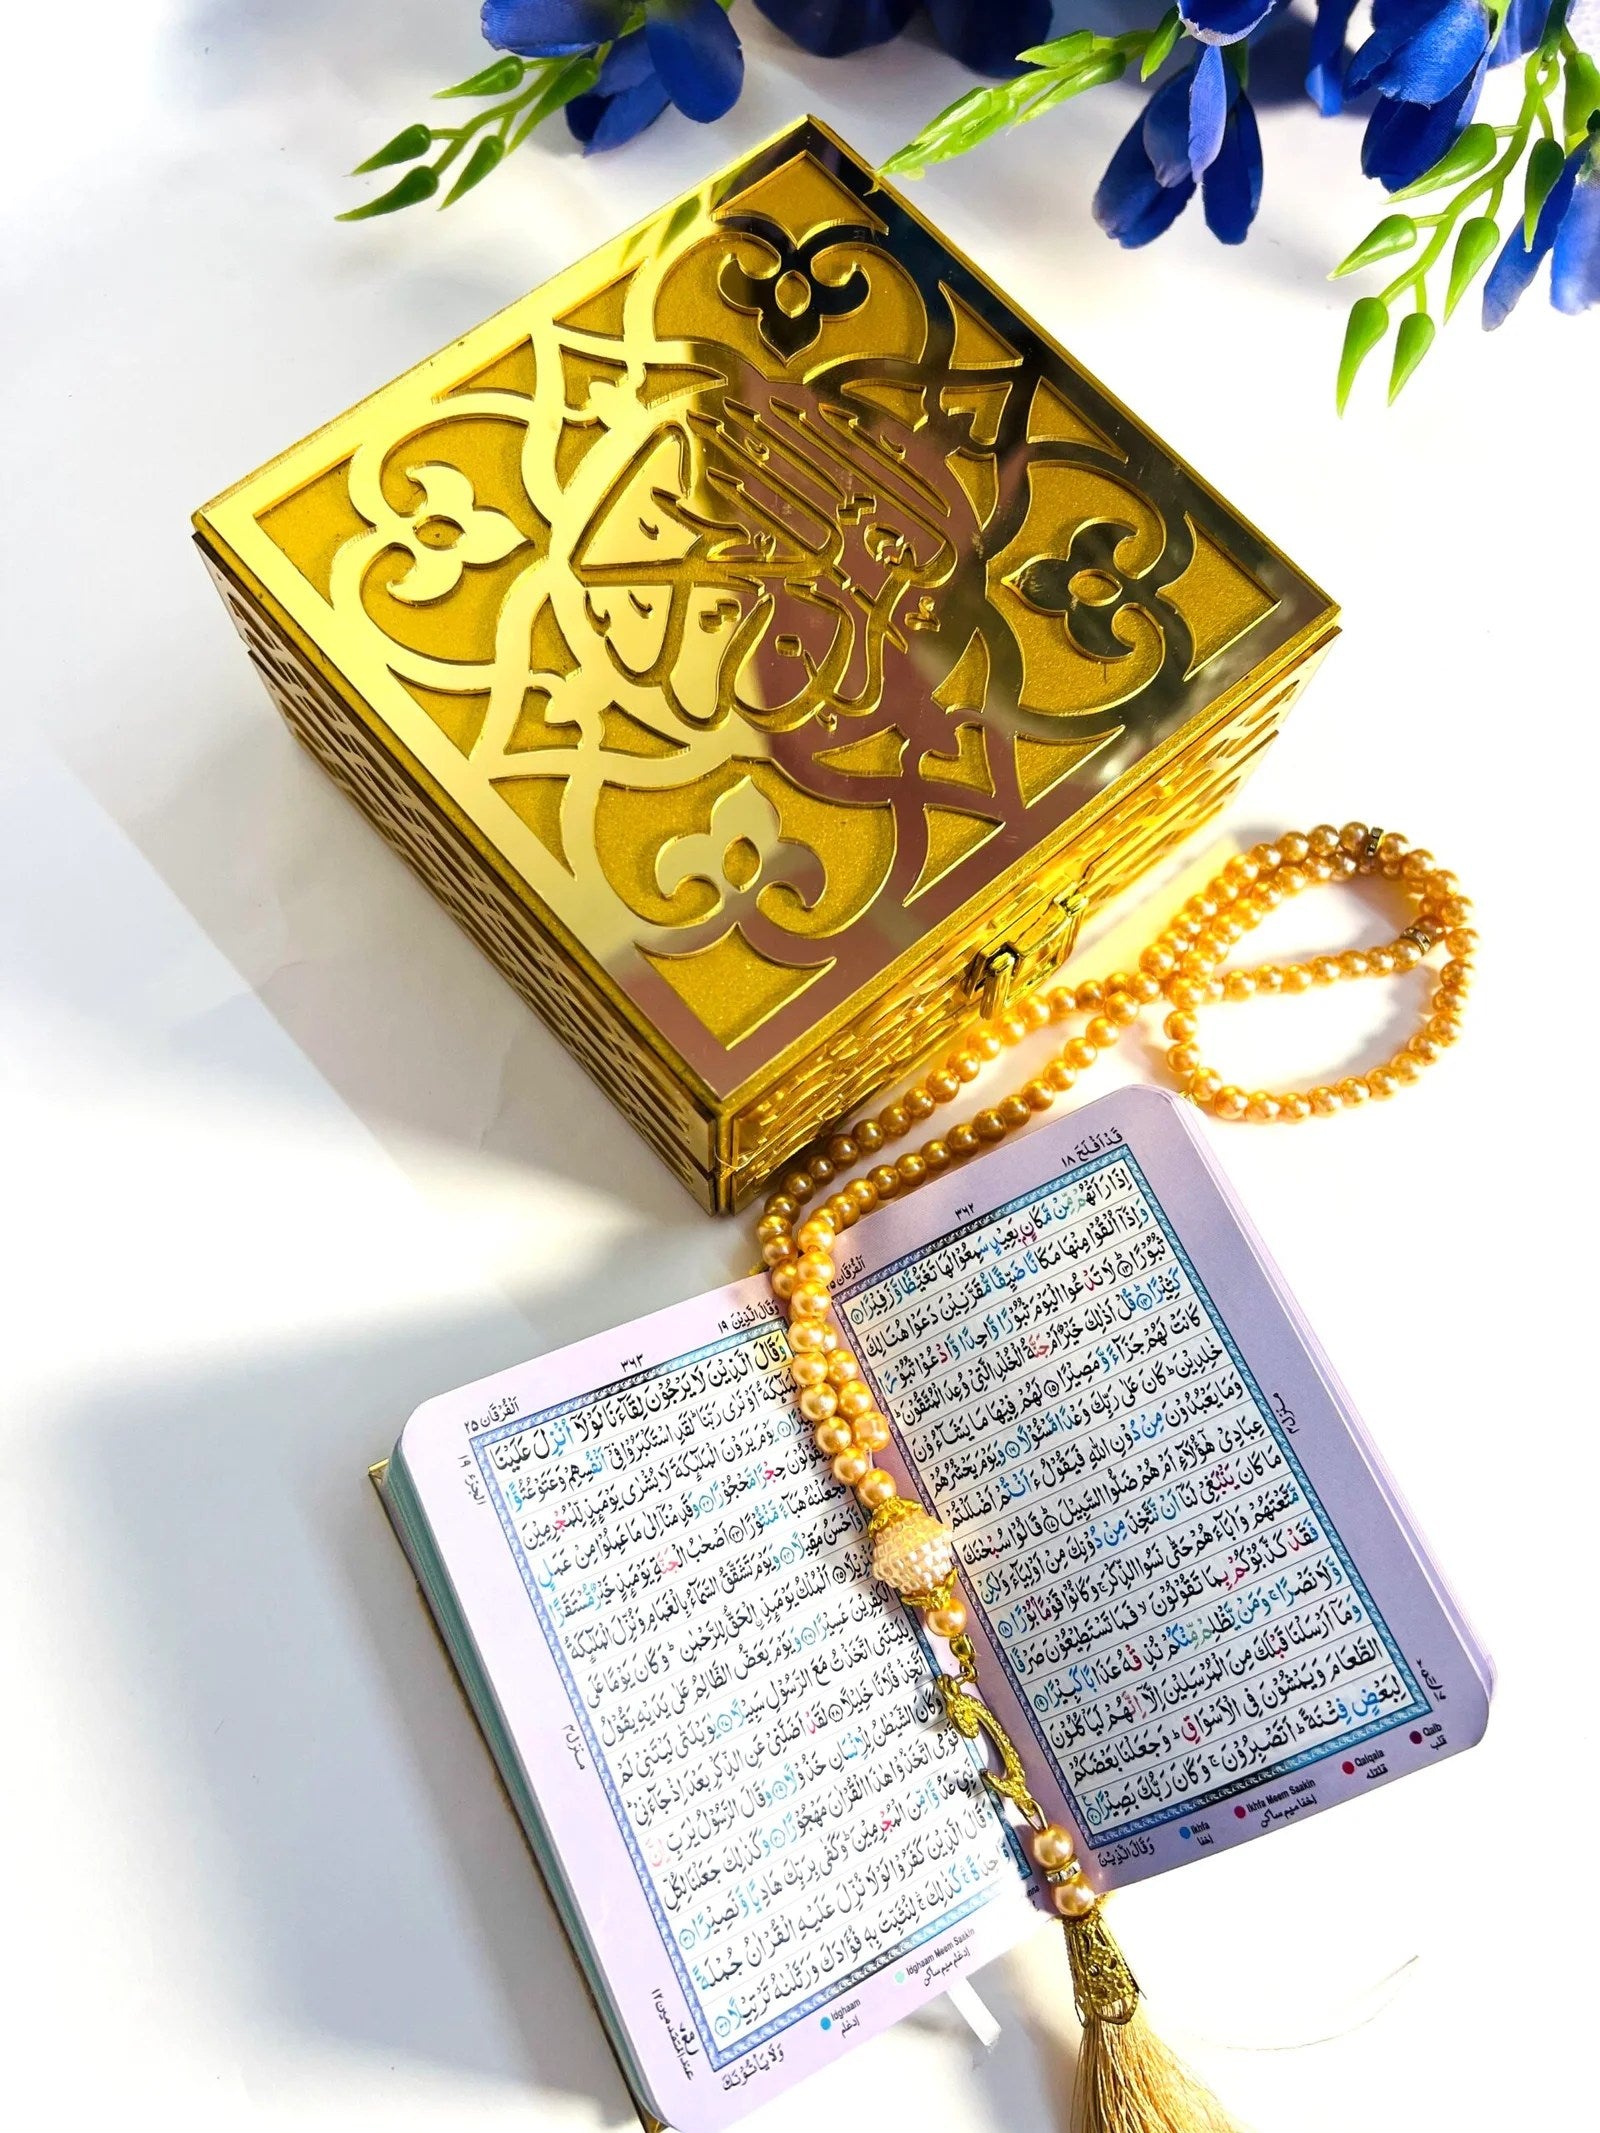 القرآن الكريم
قَدْ اَفْلَحَ ١٨
٣٦٢
اَلْفُرْقَان ٢٥
اِذَا رَاَتْهُمْ مِّنْ مَّكَانٍۭ بَعِيْدٍ سَمِعُوْا لَهَا تَغَيُّظًا وَّزَفِيْرًا ١٢
وَاِذَآ اُلْقُوْا مِنْهَا مَكَانًا ضَيِّقًا مُّقَرَّنِيْنَ دَعَوْا هُنَالِكَ
ثُبُوْرًا ١٣ لَا تَدْعُوا الْيَوْمَ ثُبُوْرًا وَّاحِدًا وَّادْعُوْا ثُبُوْرًا
كَثِيْرًا ١٤ قُلْ اَذٰلِكَ خَيْرٌ اَمْ جَنَّةُ الْخُلْدِ الَّتِيْ وُعِدَ الْمُتَّقُوْنَ
كَانَتْ لَهُمْ جَزَآءً وَّمَصِيْرًا ١٥ لَهُمْ فِيْهَا مَا يَشَآءُوْنَ
خٰلِدِيْنَ كَانَ عَلٰى رَبِّكَ وَعْدًا مَّسْـُٔوْلًا ١٦ وَيَوْمَ يَحْشُرُهُمْ
وَمَا يَعْبُدُوْنَ مِنْ دُوْنِ اللّٰهِ فَيَقُوْلُ ءَاَنْتُمْ اَضْلَلْتُمْ
عِبَادِيْ هٰٓؤُلَآءِ اَمْ هُمْ ضَلُّوا السَّبِيْلَ ١٧ قَالُوْا سُبْحٰنَكَ
مَا كَانَ يَنْۢبَغِيْ لَنَآ اَنْ نَّتَّخِذَ مِنْ دُوْنِكَ مِنْ اَوْلِيَآءَ وَلٰكِنْ
مَّتَّعْتَهُمْ وَاٰبَآءَهُمْ حَتّٰى نَسُوا الذِّكْرَ وَكَانُوْا قَوْمًۢا بُوْرًا ١٨
فَقَدْ كَذَّبُوْكُمْ بِمَا تَقُوْلُوْنَ فَمَا تَسْتَطِيْعُوْنَ صَرْفًا
وَّلَا نَصْرًا وَمَنْ يَّظْلِمْ مِّنْكُمْ نُذِقْهُ عَذَابًا كَبِيْرًا ١٩
وَمَآ اَرْسَلْنَا قَبْلَكَ مِنَ الْمُرْسَلِيْنَ اِلَّآ اِنَّهُمْ لَيَاْكُلُوْنَ
الطَّعَامَ وَيَمْشُوْنَ فِي الْاَسْوَاقِ وَجَعَلْنَا بَعْضَكُمْ
لِبَعْضٍ فِتْنَةً اَتَصْبِرُوْنَ وَكَانَ رَبُّكَ بَصِيْرًا ٢٠
وَقَالَ الَّذِيْنَ
Ikhfa
اِخفا
Ikhfa Meem Saakin
اِخفا میم ساکن
Qalqala
قلقله
Qalb
قلب
وَقَالَ الَّذِيْنَ ١٩
٣٦٣
اَلْفُرْقَان ٢٥
الجزء ١٩
وَقَالَ الَّذِيْنَ لَا يَرْجُوْنَ لِقَآءَنَا لَوْلَآ اُنْزِلَ عَلَيْنَا
الْمَلٰٓئِكَةُ اَوْ نَرٰى رَبَّنَا لَقَدِ اسْتَكْبَرُوْا فِيْٓ اَنْفُسِهِمْ وَعَتَوْ عُتُوًّا
يَوْمَ يَرَوْنَ الْمَلٰٓئِكَةَ لَا بُشْرٰى يَوْمَئِذٍ لِّلْمُجْرِمِيْنَ
وَيَقُوْلُوْنَ حِجْرًا مَّحْجُوْرًا ٢٢ وَقَدِمْنَآ اِلٰى مَا عَمِلُوْا مِنْ عَمَلٍ
فَجَعَلْنٰهُ هَبَآءً مَّنْثُوْرًا ٢٣ اَصْحٰبُ الْجَنَّةِ يَوْمَئِذٍ خَيْرٌ مُّسْتَقَرًّا
وَّاَحْسَنُ مَقِيْلًا ٢٤ وَيَوْمَ تَشَقَّقُ السَّمَآءُ بِالْغَمَامِ وَنُزِّلَ الْمَلٰٓئِكَةُ
تَنْزِيْلًا ٢٥ اَلْمُلْكُ يَوْمَئِذِ ۨالْحَقُّ لِلرَّحْمٰنِ وَكَانَ يَوْمًا عَلَى
الْكٰفِرِيْنَ عَسِيْرًا ٢٦ وَيَوْمَ يَعَضُّ الظَّالِمُ عَلٰى يَدَيْهِ يَقُوْلُ
يٰلَيْتَنِي اتَّخَذْتُ مَعَ الرَّسُوْلِ سَبِيْلًا ٢٧ يٰوَيْلَتٰى لَيْتَنِيْ لَمْ
اَتَّخِذْ فُلَانًا خَلِيْلًا ٢٨ لَقَدْ اَضَلَّنِيْ عَنِ الذِّكْرِ بَعْدَ اِذْ جَآءَنِيْ
وَكَانَ الشَّيْطٰنُ لِلْاِنْسَانِ خَذُوْلًا ٢٩ وَقَالَ الرَّسُوْلُ يٰرَبِّ اِنَّ
قَوْمِي اتَّخَذُوْا هٰذَا الْقُرْاٰنَ مَهْجُوْرًا ٣٠ وَكَذٰلِكَ جَعَلْنَا لِكُلِّ
نَبِيٍّ عَدُوًّا مِّنَ الْمُجْرِمِيْنَ وَكَفٰى بِرَبِّكَ هَادِيًا وَّنَصِيْرًا ٣١
وَقَالَ الَّذِيْنَ كَفَرُوْا لَوْلَا نُزِّلَ عَلَيْهِ الْقُرْاٰنُ جُمْلَةً
وَّاحِدَةً كَذٰلِكَ لِنُثَبِّتَ بِهٖ فُؤَادَكَ وَرَتَّلْنٰهُ تَرْتِيْلًا ٣٢
وَلَا يَاْتُوْنَكَ
Idghaam
اِدغام
Idghaam Meem Saakin
اِدغام میم ساکن